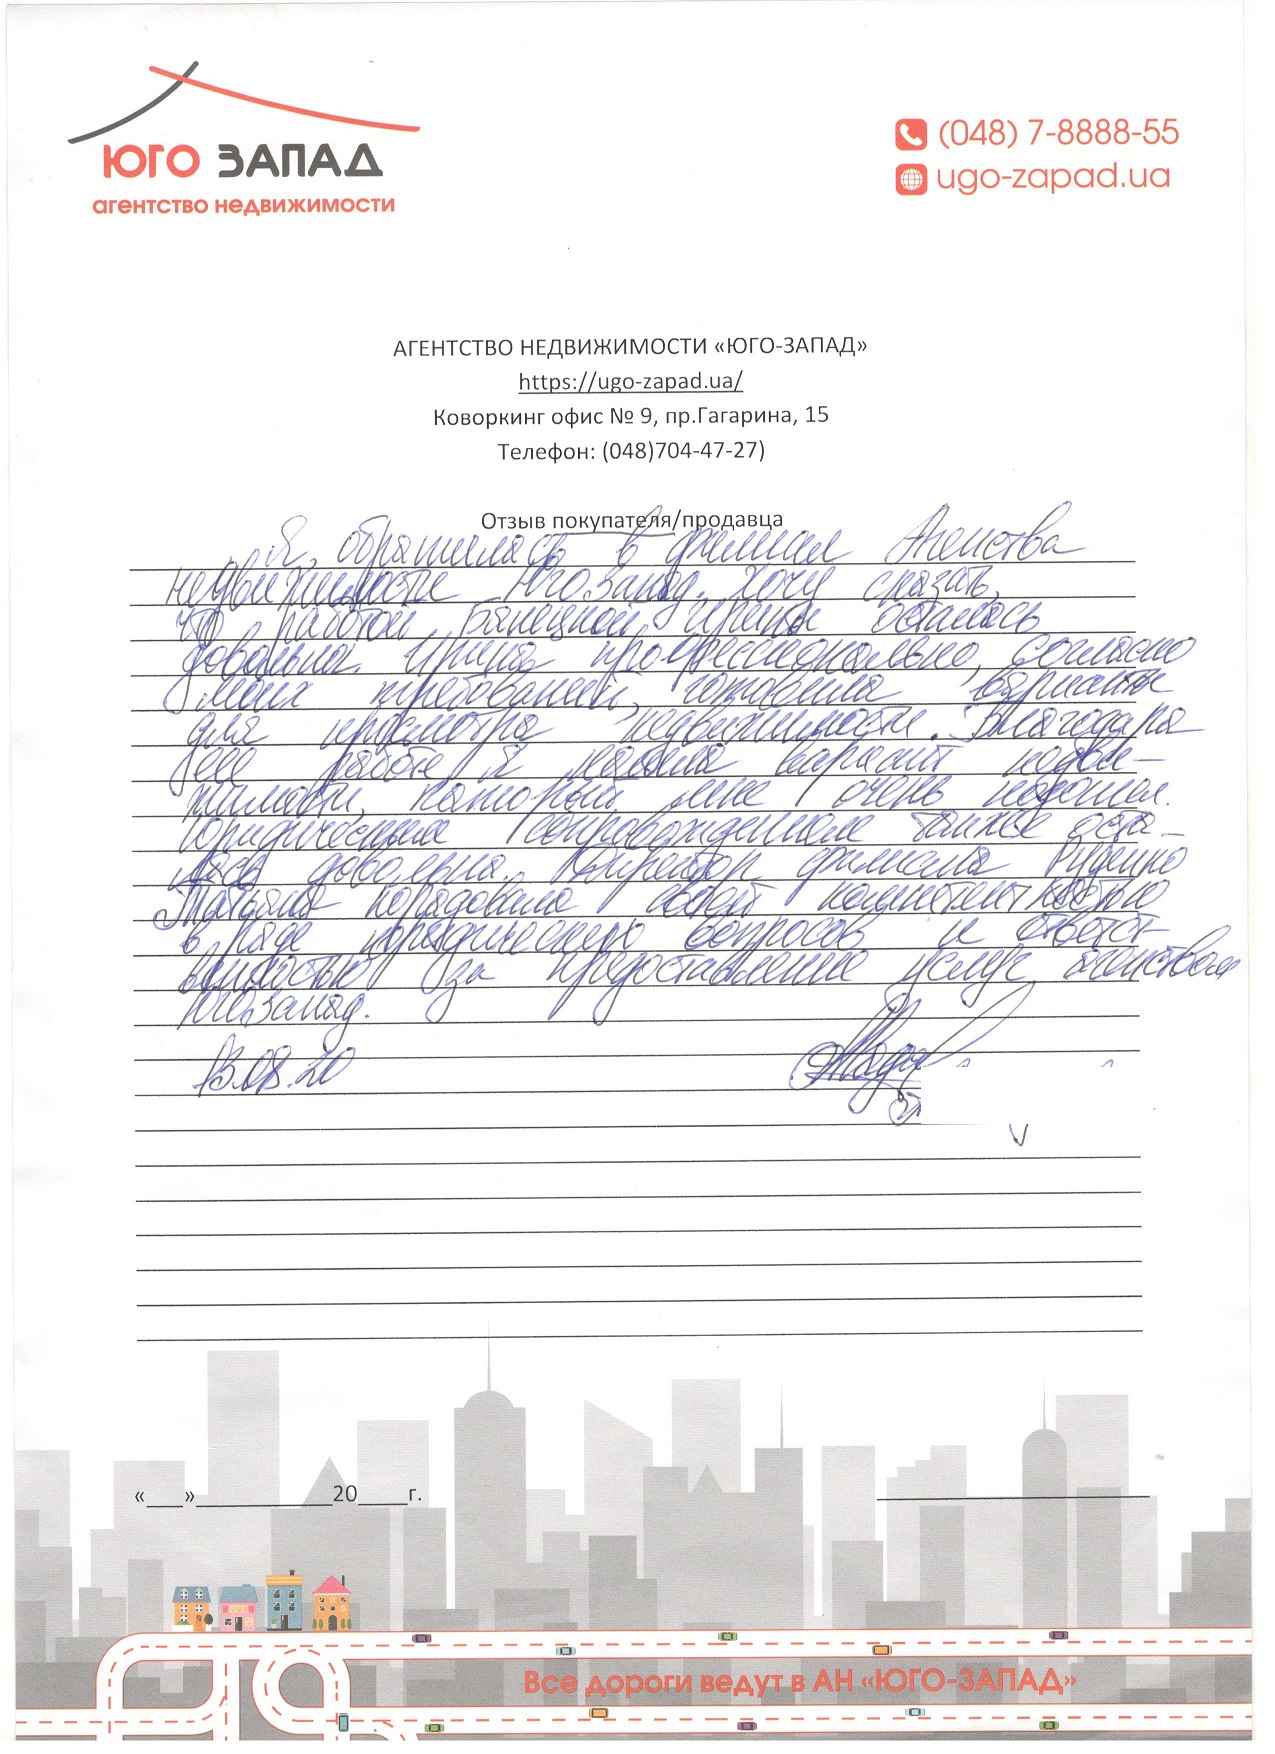 ЮГО ЗАПАД
агентство недвижимости
(048) 7-8888-55
ugo-zapad.ua
АГЕНТСТВО НЕДВИЖИМОСТИ «ЮГО-ЗАПАД»
https://ugo-zapad.ua/
Коворкинг офис № 9, пр.Гагарина, 15
Телефон: (048)704-47-27)
Отзыв покупателя/продавца
Я, обратилась в филиал Агенства
недвижимости ЮгоЗапад. Хочу сказать,
что работой Ирины осталась
довольна. Ирина профессионально, согласно
моих требований, готовила варианты
для просмотра недвижимости. Благодаря
ее работе я нашла вариант недви-
жимости, который мне очень подошел.
Юридическим сопровождением также оста-
лась довольна. Директор филиала Руденко
Татьяна порадовала своей компетентностью
в ряде юридических вопросов и ответст-
венностью за предоставление услуг агенством
ЮгоЗапад.
13.08.20
«___»___________20____г.
Все дороги ведут в АН «ЮГО-ЗАПАД»